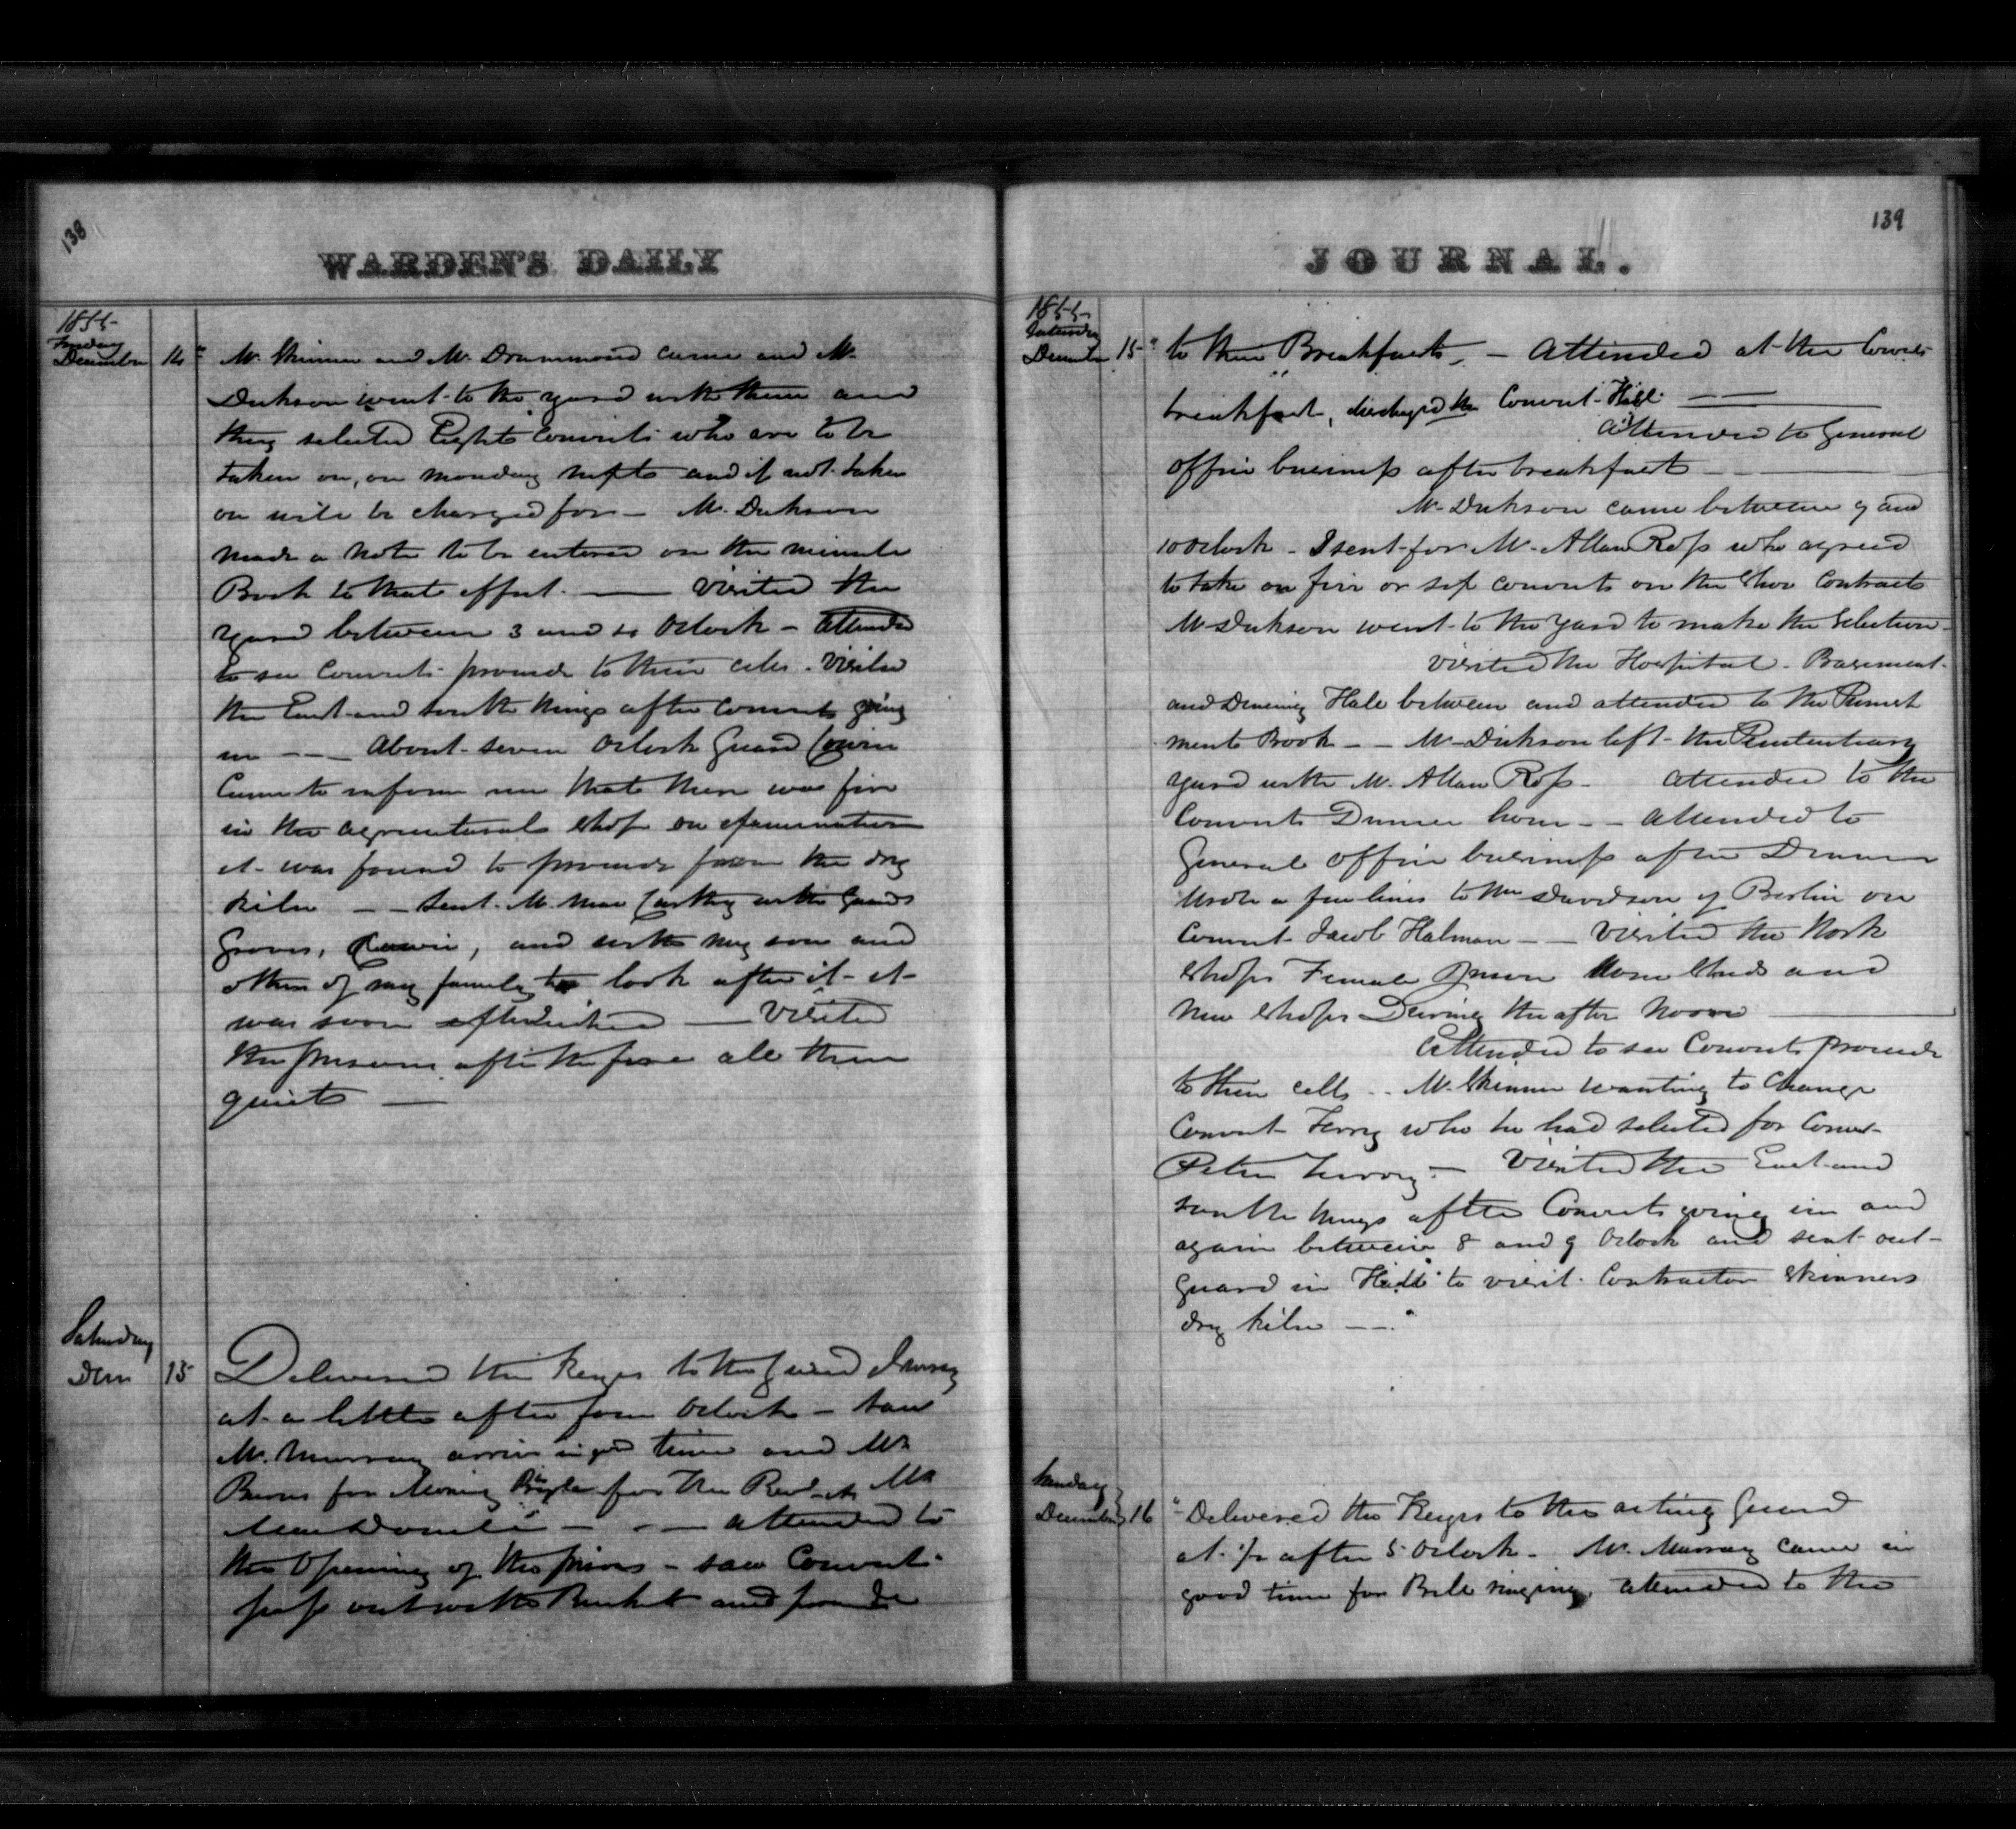 138
WARDEN'S DAILY
1855
Friday
December 14
Mr. Skinner and Mr. Drummond came and Mr.
Dickson went to the yard with them and
they selected Eight Convicts who are to be
taken on, on monday next and if not taken
on will be charged for - Mr. Dickson
made a note to be entered on the minute
Book to that effect. — Visited the
Yard between 3 and 4 Oclock - attended
to see Convicts proceed to their cells. Visited
the East and South Wings after Convicts going
in - - About seven Oclock Guard
Came to inform me that there was fire
in the agricultural shop on examination
it was found to proceed from the dry
kiln - - Sent Mr. Mac Carthy with Guards
and with my son and
others of my family to look after it - it
was soon — Visited
the prisons after the fire all them
quiet —
Saturday
Dem 15
Delivered the Keyes to the Guard
at a little after four Oclock - Saw
Mr. Murray arrive in good time and Mr.
Burns for for the Revd. Mr
MacDonell - - attended to
the Opening of the prison - saw Convicts
pass out with Buckets and proceed
139
JOURNAL.
1855
Saturday
December 15
to their Breakfasts, - Attended at the Convicts
breakfast, discharged the Convict Hill —
Attended to General
Office business after breakfast -
Mr. Dickson came between 9 and
10 Oclock - I sent for Mr. Allan Ross who agreed
to take on five or six convicts on the Shoe Contract
Mr. Dickson went to the Yard to make the Selection -
Visited the Hospital. Basement
and Dineing Hall between and attended to the Punish
ment Book - - Mr Dickson left the Penitentiary
yard with Mr. Allan Ross - attended to the
Convicts Dinner hour - - Attended to
General Office business after Dinner
Wrote a few lines to Wm Davidson of Berlin on
Convict Jacob Halman - - Visited the Work
Shops Female Prison Stone Sheds and
New Shops During the after Noon —
Attended to see Convicts proceed
to their cells - - Mr. Skinner wanting to Change
Convict who he had selected for Convict
Peter - Visited the East and
South Wings after Convicts going in and
again between 8 and 9 Oclock and sent out
Guard in Hall to visit Contractor Skinners
dry kiln - -
Sunday
December 16
Delivered the Keyes to the acting Guard
at ½ after 5 Oclock - Mr. Murray came in
good time for Bell ringing. attended to the